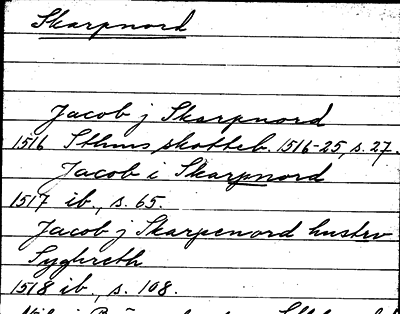 Skarpnord
Jacob j Skarpnord
1516 Sthms skotteb. 1516-25, s. 27.
Jacob i Skarpnord
1517 ib., s. 65.
Jacob j Skarpenord hustrv
Syghreth
1518 ib., s. 108.